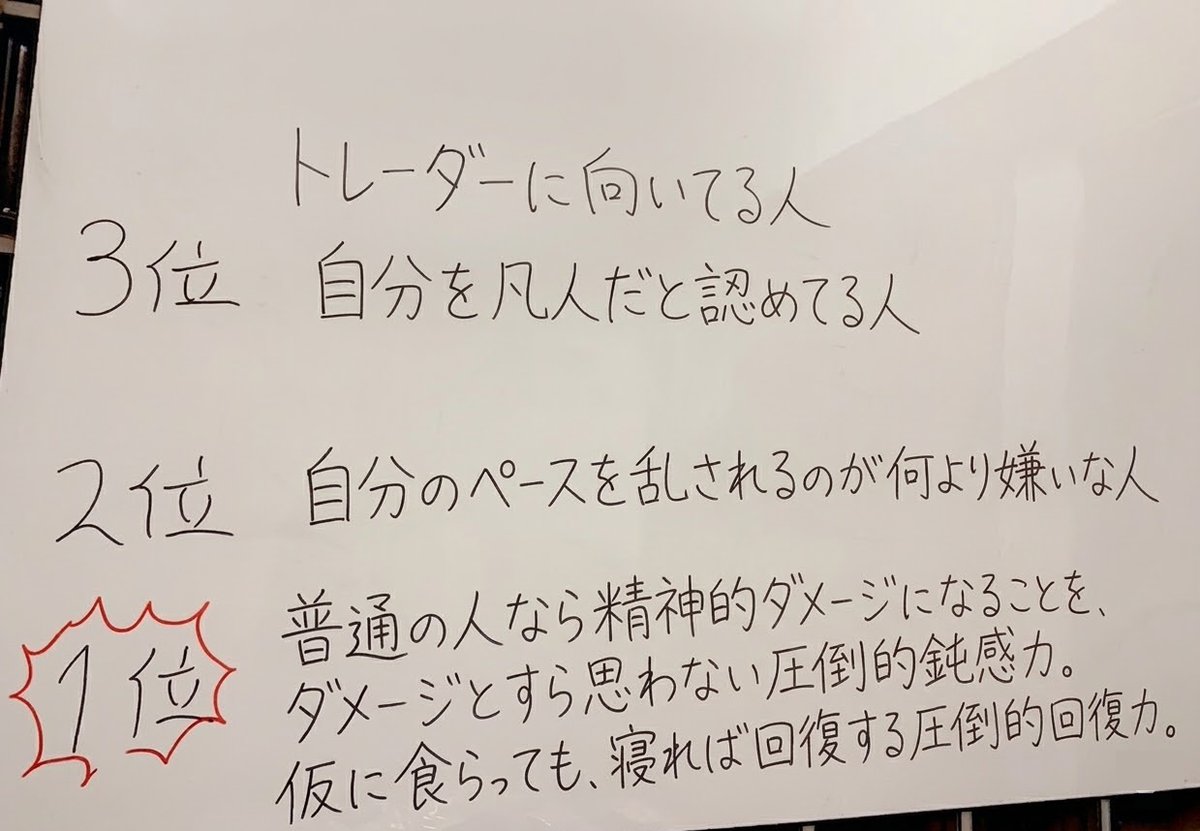 トレーダーに向いてる人
3位 自分を凡人だと認めてる人
2位 自分のペースを乱されるのが何より嫌いな人
1位 普通の人なら精神的ダメージになることを、
ダメージとすら思わない圧倒的鈍感力。
仮に食らっても、寝れば回復する圧倒的回復力。